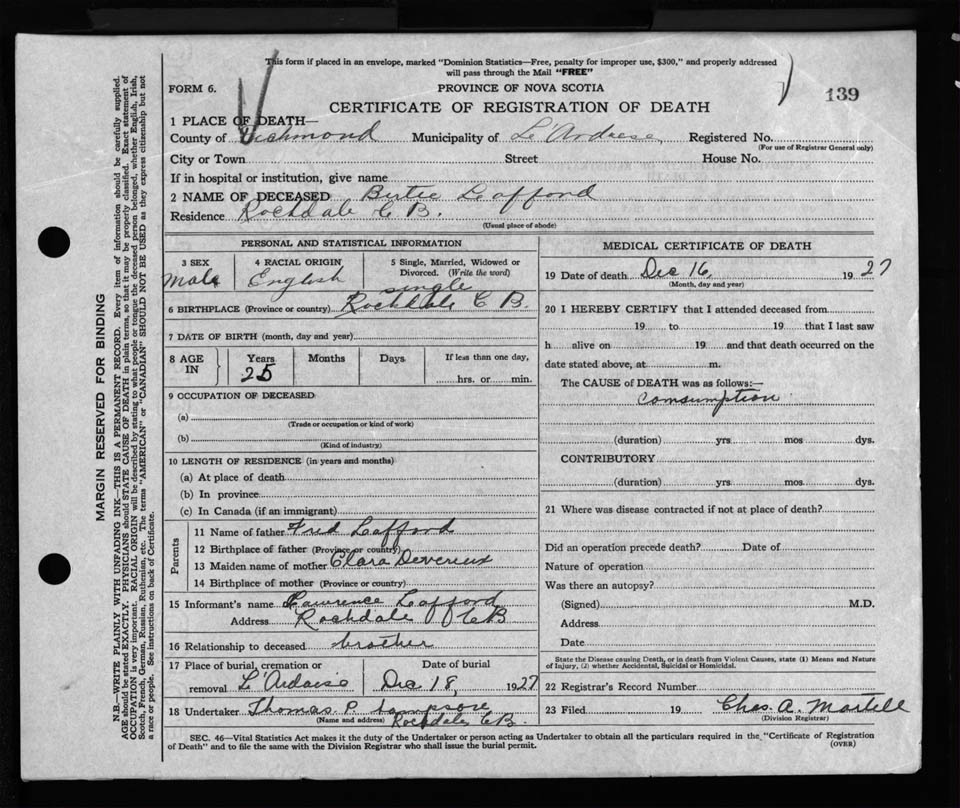 This form if placed in an envelope, marked "Dominion Statistics—Free, penalty for improper use, $300," and properly addressed
will pass through the Mail "FREE"
FORM 6.
PROVINCE OF NOVA SCOTIA
139
CERTIFICATE OF REGISTRATION OF DEATH
1 PLACE OF DEATH—
County of Richmond Municipality of L'Ardoise, Registered No.
(For use of Registrar General only)
City or Town Street House No.
If in hospital or institution, give name
2 NAME OF DECEASED Bertie Lafford
Residence Rockdale C B.
(Usual place of abode)
PERSONAL AND STATISTICAL INFORMATION
3 SEX 4 RACIAL ORIGIN 5 Single, Married, Widowed or
Divorced. (Write the word)
Male English single
6 BIRTHPLACE (Province or country) Rockdale C B
7 DATE OF BIRTH (month, day and year)
8 AGE IN Years Months Days If less than one day,
25 hrs. or min.
9 OCCUPATION OF DECEASED
(a)
(Trade or occupation or kind of work)
(b)
(Kind of industry)
10 LENGTH OF RESIDENCE (in years and months)
(a) At place of death
(b) In province
(c) In Canada (if an immigrant)
Parents
11 Name of father Fred Lafford
12 Birthplace of father (Province or country)
13 Maiden name of mother Clara Devereux
14 Birthplace of mother (Province or country)
15 Informant's name Lawrence Lafford
Address Rockdale CB
16 Relationship to deceased brother
17 Place of burial, cremation or Date of burial
removal L'Ardoise Dec 18, 1927
18 Undertaker Thomas P
(Name and address) Rockdale CB.
MEDICAL CERTIFICATE OF DEATH
19 Date of death Dec 16, 1927
(Month, day and year)
20 I HEREBY CERTIFY that I attended deceased from
19 to 19 that I last saw
h alive on 19 and that death occurred on the
date stated above, at m.
The CAUSE of DEATH was as follows:—
Comsumption
(duration) yrs. mos dys.
CONTRIBUTORY
(duration) yrs. mos. dys.
21 Where was disease contracted if not at place of death?
Did an operation precede death? Date of
Nature of operation
Was there an autopsy?
(Signed) M.D.
Address
Date
State the Disease causing Death, or in death from Violent Causes, state (1) Means and Nature
of Injury, (2) whether Accidental, Suicidal or Homicidal.
22 Registrar's Record Number
23 Filed 19 Chas. A. Martell
(Division Registrar)
SEC. 46—Vital Statistics Act makes it the duty of the Undertaker or person acting as Undertaker to obtain all the particulars required in the "Certificate of Registration
of Death" and to file the same with the Division Registrar who shall issue the burial permit. (OVER)
MARGIN RESERVED FOR BINDING
N.B.—WRITE PLAINLY WITH UNFADING INK—THIS IS A PERMANENT RECORD. Every item of information should be carefully supplied.
AGE should be stated EXACTLY. PHYSICIANS should STATE CAUSE OF DEATH in plain terms, so that it may be properly classified. Exact statement of
OCCUPATION is very important. RACIAL ORIGIN will be described by stating to what people or tongue the deceased person belonged, whether English, Irish,
Scotch, French, German, Russian, Ruthenian, etc. The terms "AMERICAN" or "CANADIAN" SHOULD NOT BE USED as they express citizenship but not
a race or people. See instructions on back of Certificate.